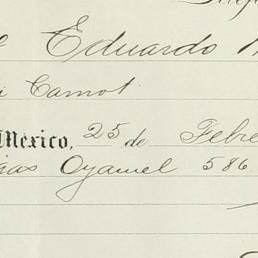 Eduardo
Carnot
México, 25 de Febre
Oyamel 586